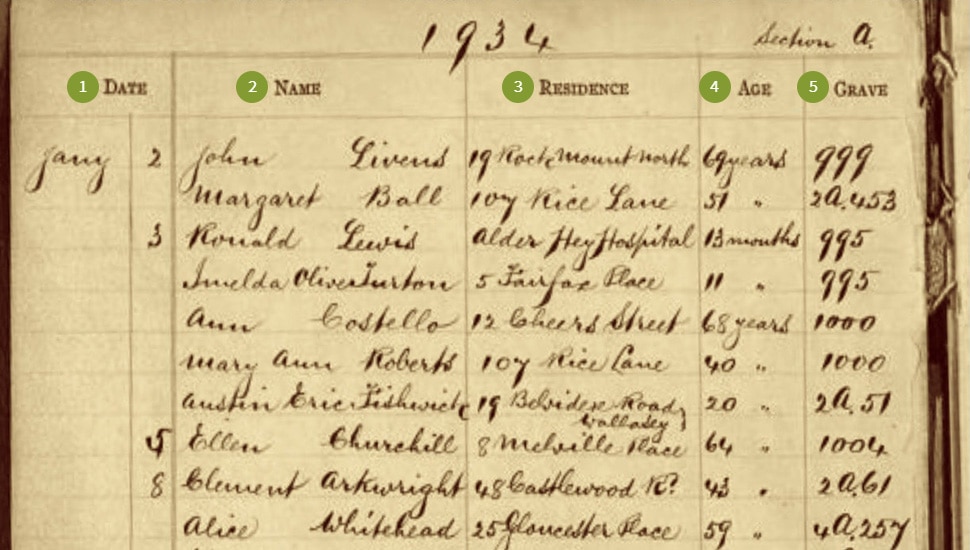 1934 Section A.
1 DATE 2 NAME 3 RESIDENCE 4 AGE 5 GRAVE
Jany 2 John Livens 19 Rock Mount North 69 years 999
Margaret Ball 107 Rice Lane 51 " 2A.453
3 Ronald Lewis Alder Hey Hospital 13 months 995
Imelda Oliver Turton 5 Fairfax Place 11 " 995
Ann Costello 12 Cheers Street 68 years 1000
Mary Ann Roberts 107 Rice Lane 40 " 1000
Austin Eric Fishwick 19 Belvidere Road, 20 " 2A.51
Wallasey
5 Ellen Churchill 8 Melville Place 64 " 1004
8 Clement Arkwright 48 Castlewood Rd 43 " 2A.61
Alice Whitehead 25 Gloucester Place 59 " 4A.257